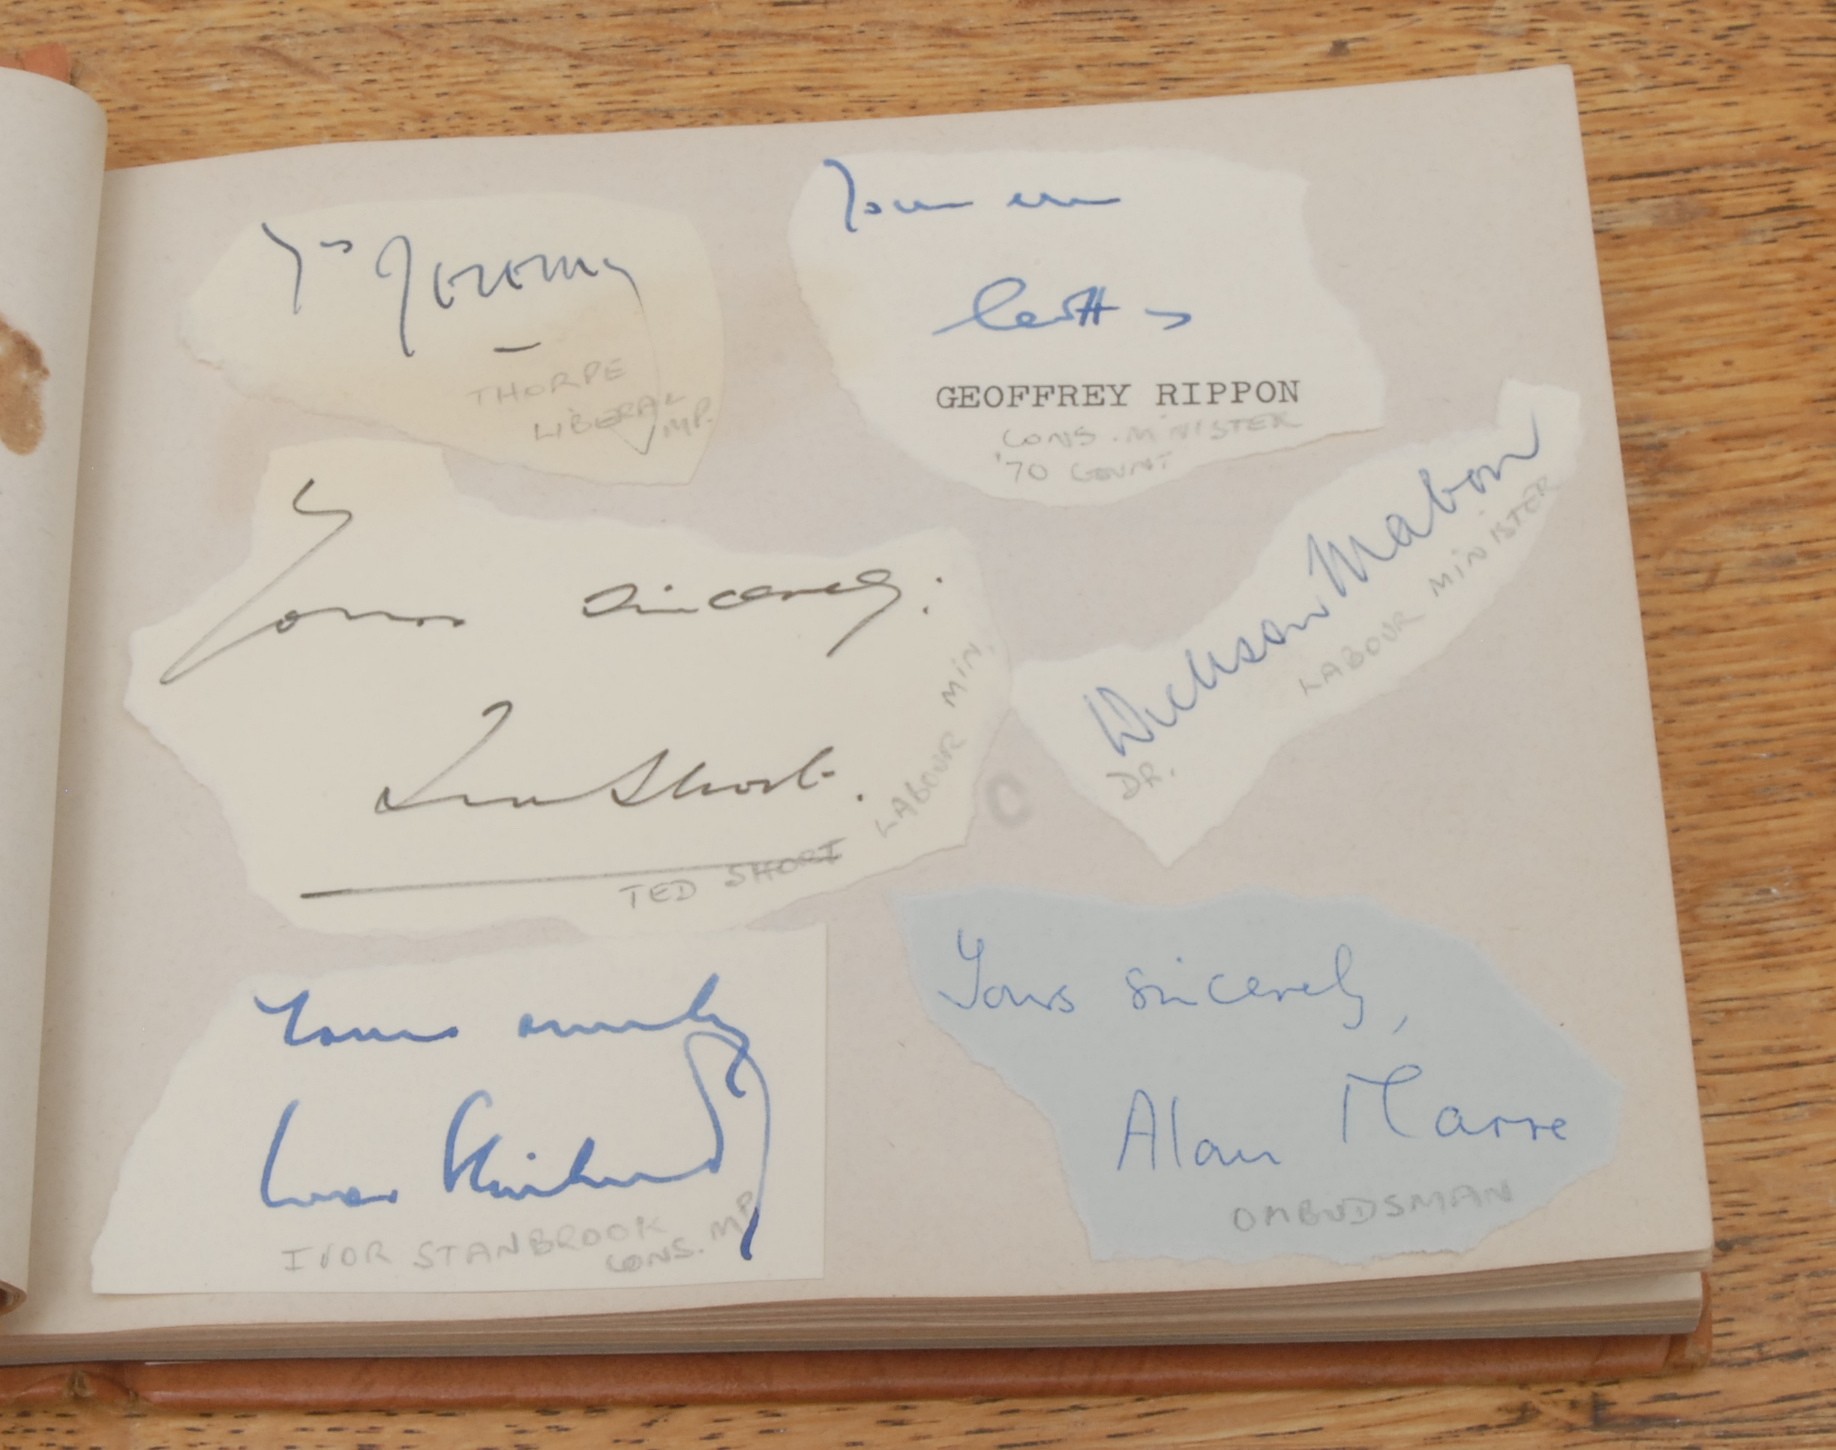 Yrs Jeremy
THORPE
LIBERAL
MP.
Yours ever
Geoffrey
GEOFFREY RIPPON
CONS. MINISTER
'70 GOVNT
Yours sincerely:
Ted Short.
TED SHORT LABOUR MIN.
Dickson Mabon
DR. LABOUR MINISTER
Yours sincerely
Ivor Stanbrook
IVOR STANBROOK
CONS. MP
Yours sincerely,
Alan Marre
OMBUDSMAN